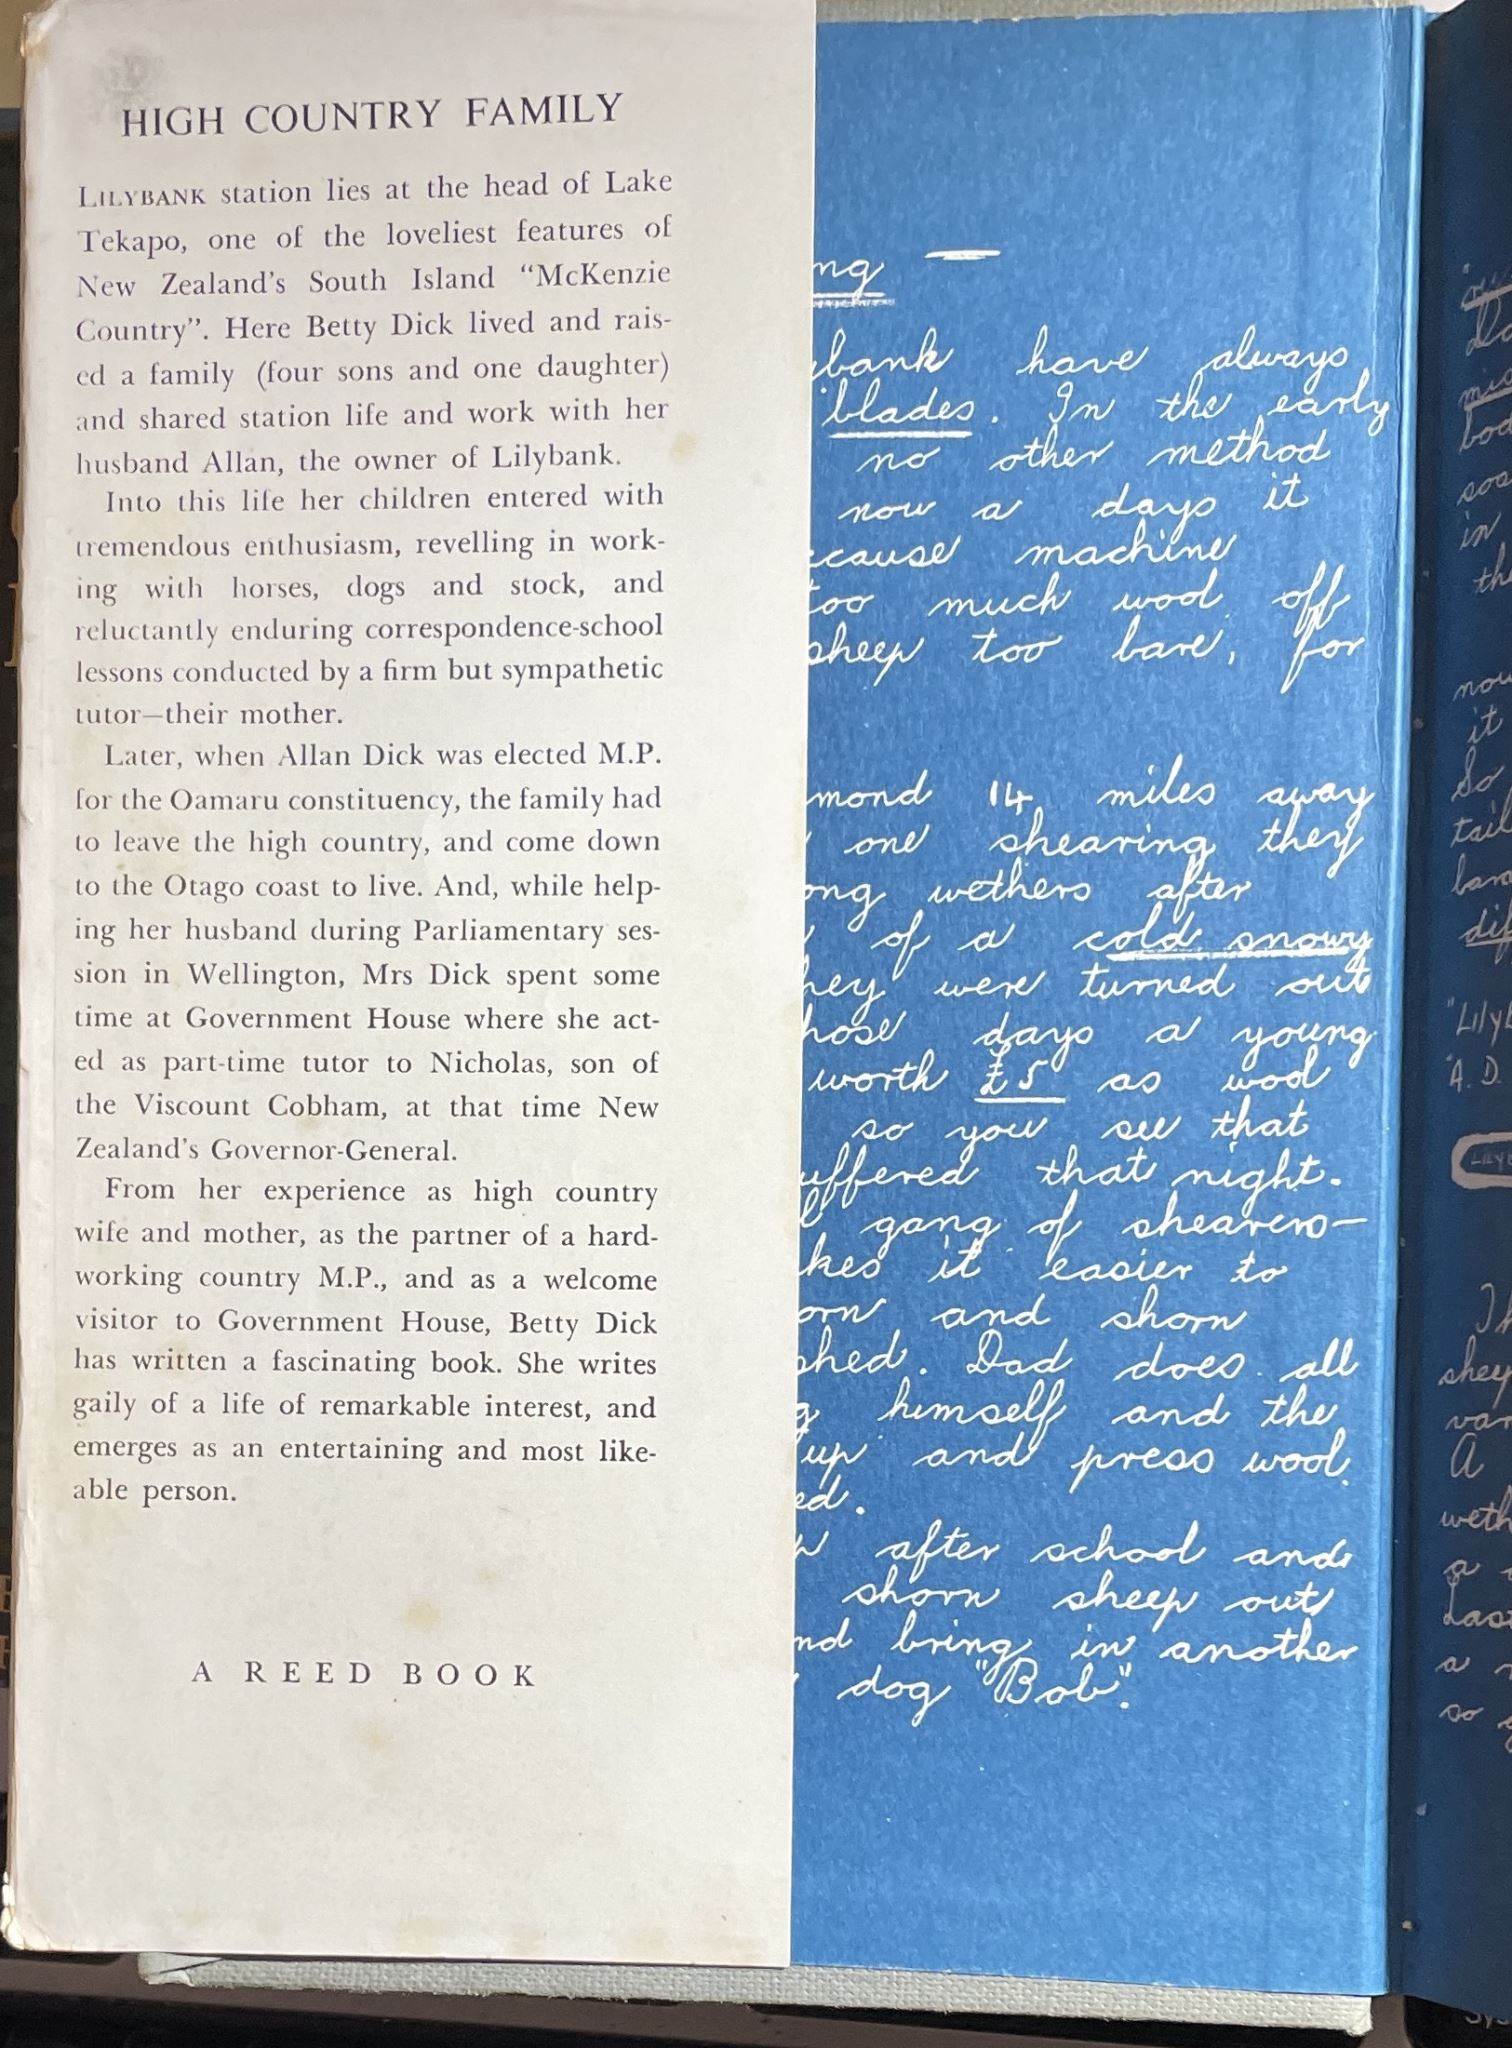 HIGH COUNTRY FAMILY
LILYBANK station lies at the head of Lake
Tekapo, one of the loveliest features of
New Zealand's South Island "McKenzie
Country". Here Betty Dick lived and rais-
ed a family (four sons and one daughter)
and shared station life and work with her
husband Allan, the owner of Lilybank.
Into this life her children entered with
tremendous enthusiasm, revelling in work-
ing with horses, dogs and stock, and
reluctantly enduring correspondence-school
lessons conducted by a firm but sympathetic
tutor—their mother.
Later, when Allan Dick was elected M.P.
for the Oamaru constituency, the family had
to leave the high country, and come down
to the Otago coast to live. And, while help-
ing her husband during Parliamentary ses-
sion in Wellington, Mrs Dick spent some
time at Government House where she act-
ed as part-time tutor to Nicholas, son of
the Viscount Cobham, at that time New
Zealand's Governor-General.
From her experience as high country
wife and mother, as the partner of a hard-
working country M.P., and as a welcome
visitor to Government House, Betty Dick
has written a fascinating book. She writes
gaily of a life of remarkable interest, and
emerges as an entertaining and most like-
able person.
A REED BOOK
ng —
ybank have always
blades. In the early
no other method
now a days it
ecause machine
too much wool off
sheep too bare, for
mond 14 miles away
one shearing they
ong wethers after
of a cold snowy
hey were turned out
hose days a young
worth £5 as wool
so you see that
uffered that night.
gang of shearers—
kes it easier to
orn and shorn
shed. Dad does all
g himself and the
up and press wool
ed.
after school and
shorn sheep out
nd bring in another
dog "Bob".
in
the
now
it
So
tail
"Lilyb
A.D.
LILYB
Th
sheep
A
weth
a
Last
a
so